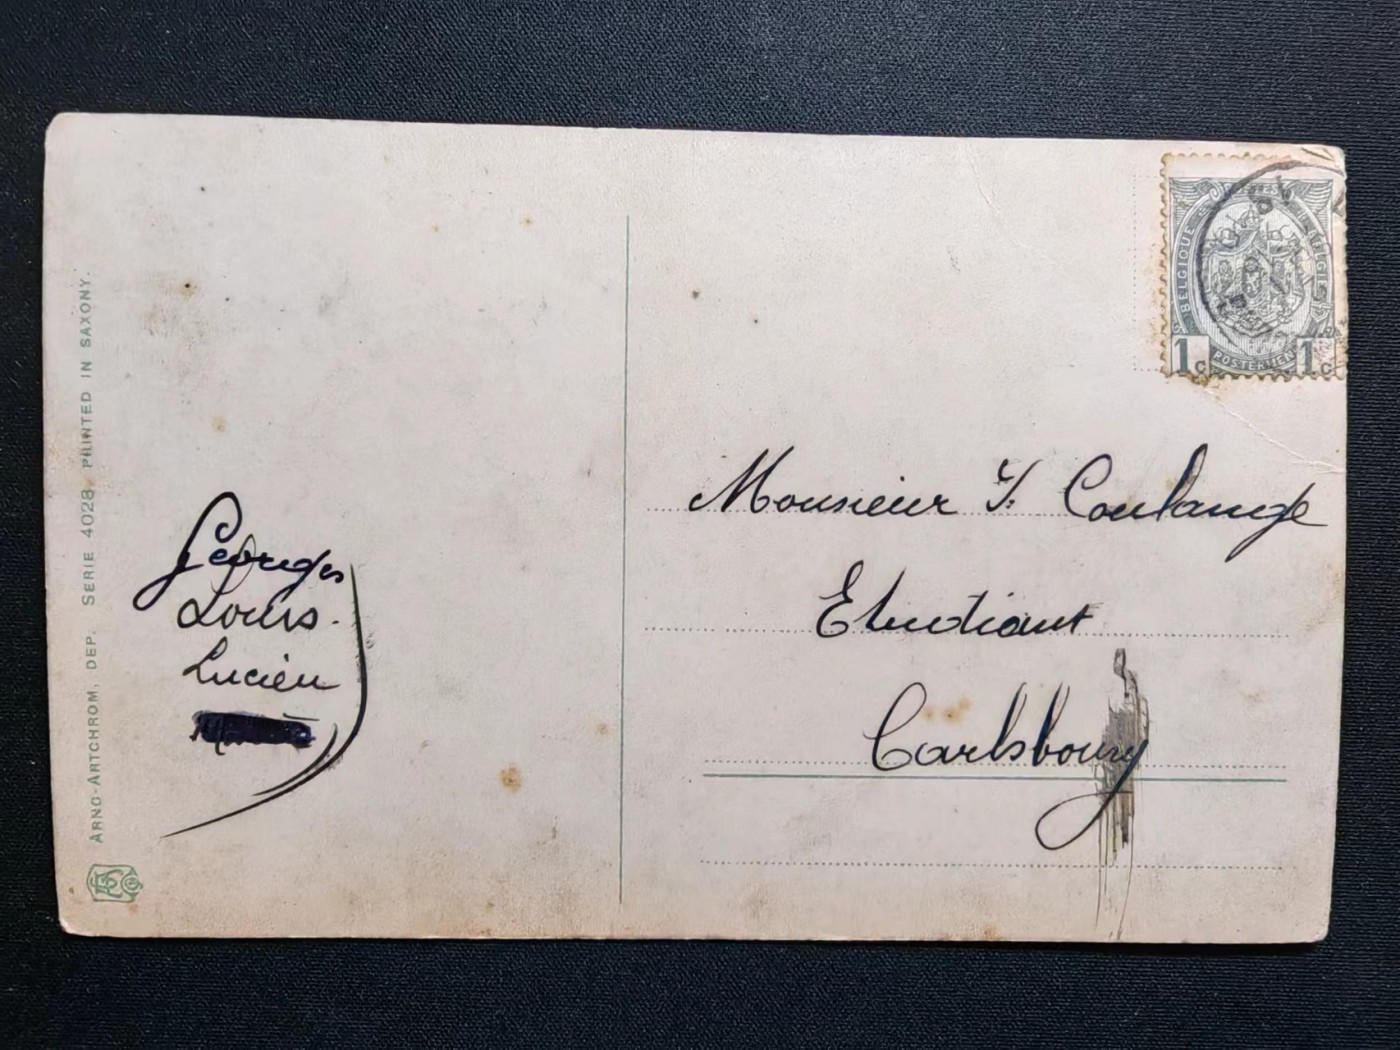 Georges
Louis.
Lucien
Monsieur J. Coulange
Etudiant
Carlsbourg
ARNO-ARTCHROM, DEP. SERIE 4028, PRINTED IN SAXONY.
BELGIQUE BELGIË
POSTERIJEN
1c 1c